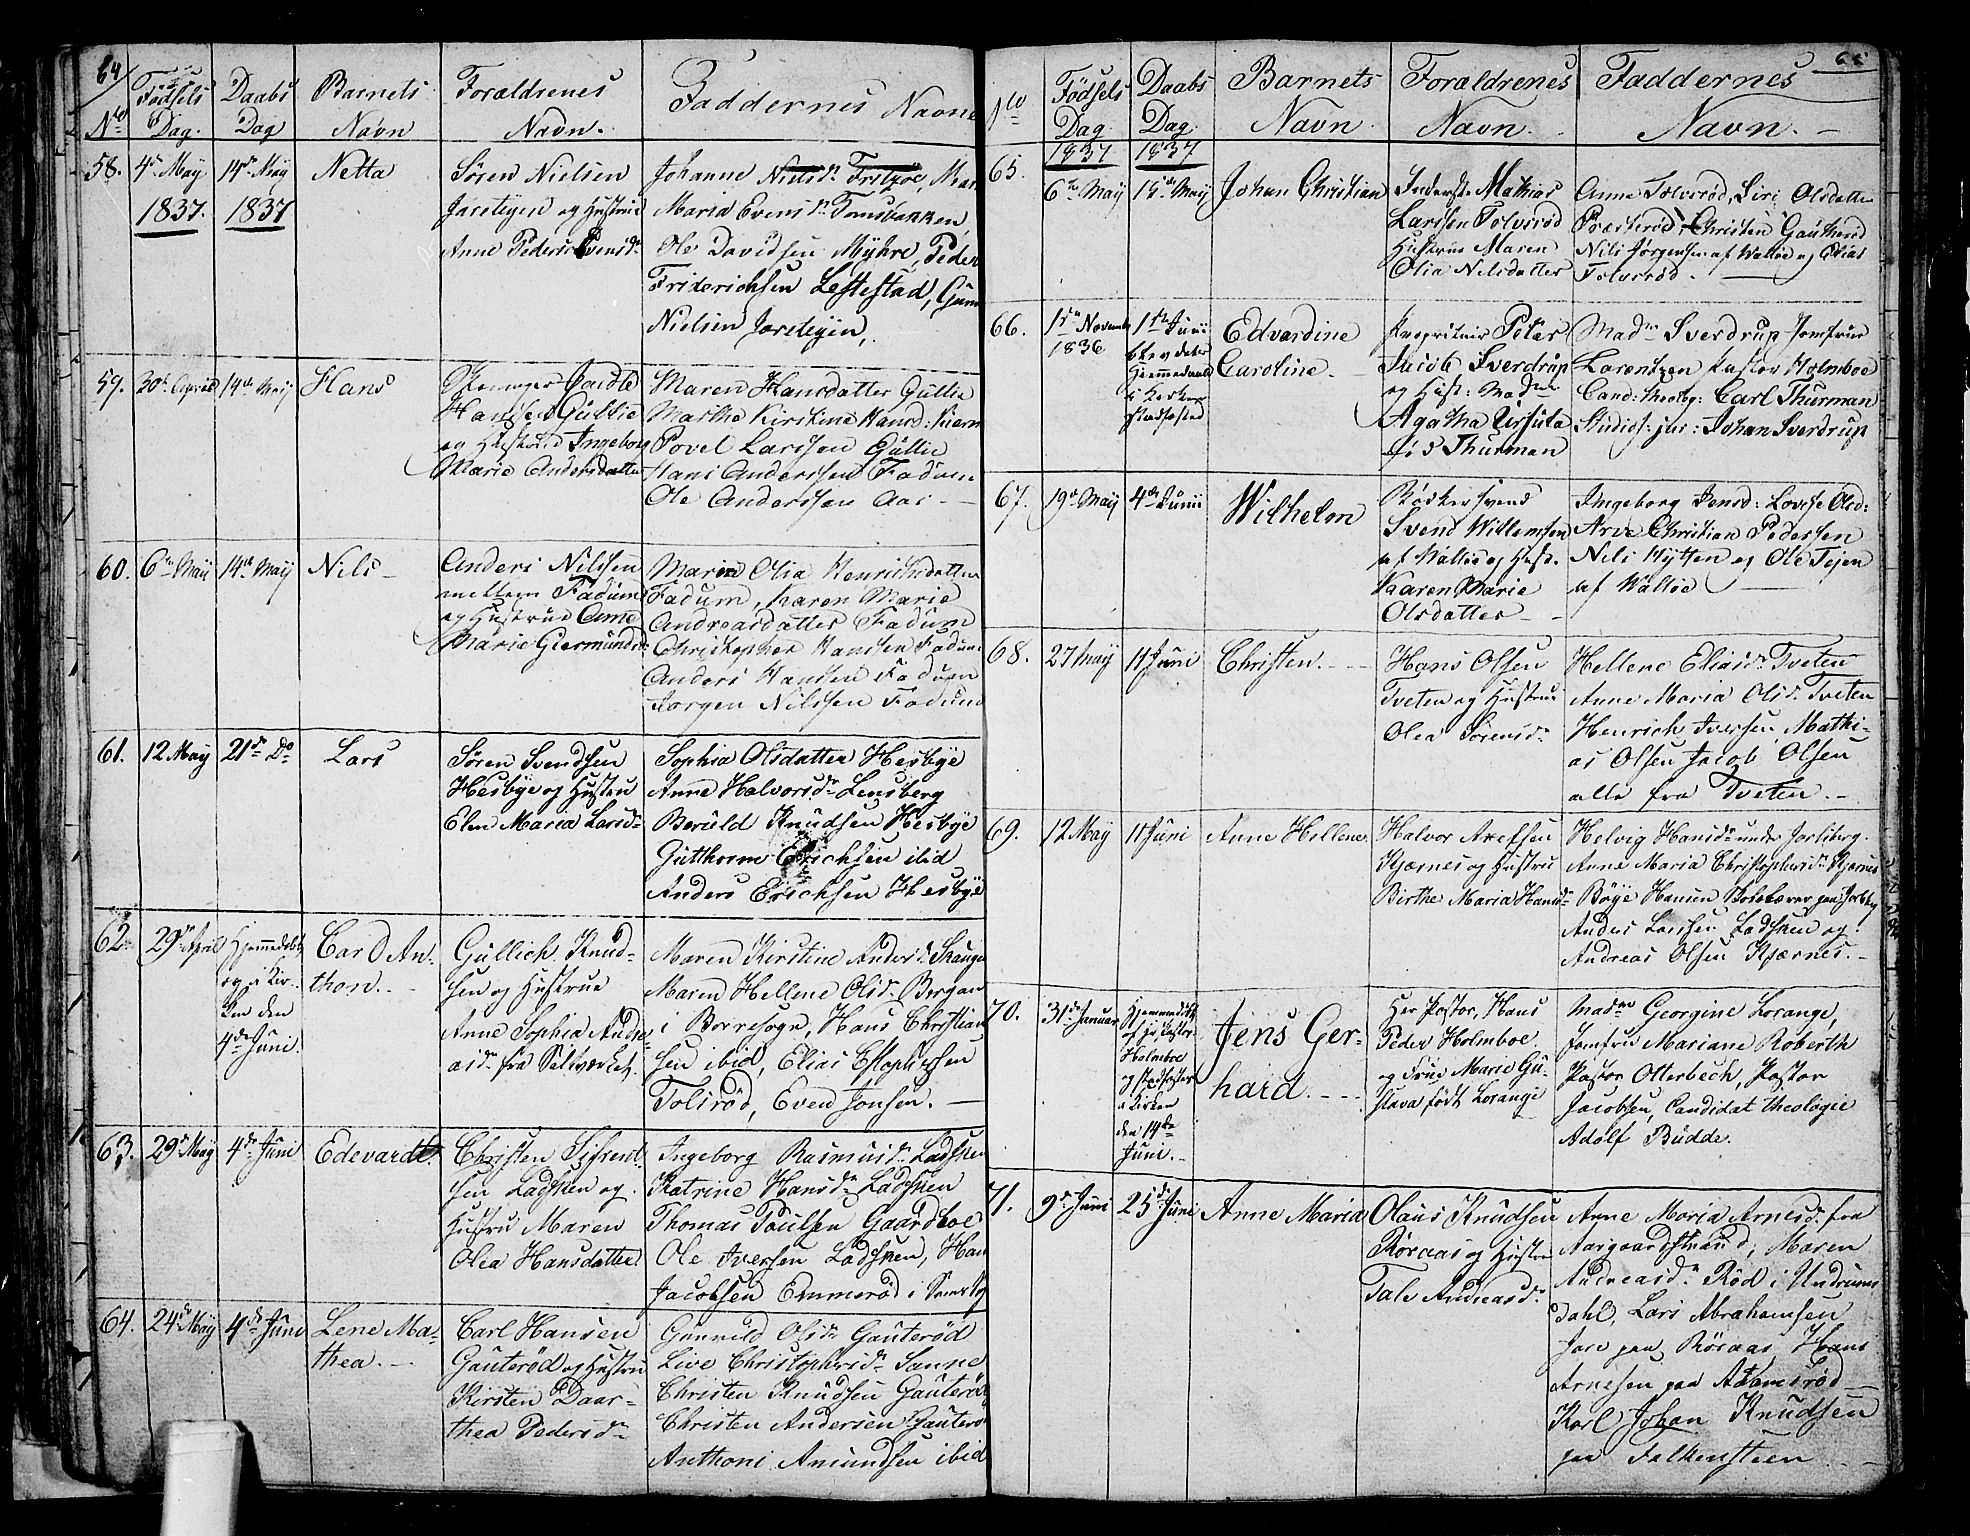 64
No
Fødsels
Dag.
Daabs
Dag
Barnets
Navn
Forældrenes
Navn.
Faddernes Navne
58.
4de May
1837.
14de May
1837
Netta
Søren Nielsen
Jareteyen og Hustrue
Anne Peders Evensdr
Johanne Nielsdr Fritzøe, Mar
Maria Evensdr Tomsbakken,
Ole Davidsen Myhre, Peder
Friderichsen Lestestad, Gunn
Nielsen Jareteyen,
59.
30te April
14de May
Hans
Jacob
Hansen Gullie
og Hustrue Ingeborg
Marie Andersdatter
Maren Hansdatter Gullie
Marthe Kirstine Hansd:
Povel Larssen Gullie
Hans Anderssen Fadum
Ole Anderssen Aas
60.
6te May
14de May
Nils
Anders Nilssen
mellem Fadum
og Hustrue Anne
Marie Giermundsd
Maria Olia Henrichsdatter
Fadum, Karen Marie
Andreasdatter Fadum
Christopher Hansen Fadum
Anders Hansen Fadum
Jørgen Nilssen Fadum
61.
12 May
21de Do
Lars
Søren Svendsen
Hesbye og Hustru
Elen Maria Larsdr
Sophia Olsdatter Hesbye
Anne Halvorsdr Lensberg
Beruld Knudsen Hesbye
Gutthorm Erichsen ibid
Anders Erichsen Hesbye
62.
29de April
Hjemmedøbt
og i Kir-
ken den
4de Juni.
Carl An-
thon.
Gullich Knud-
sen og Hustrue
Anne Sophia Andre-
asdr fra Saltværket.
Maren Kirstine Andersdr Skauge
Maren Hellene Olsdr Bergan
i Borresogn, Hans Christian
sen ibid, Elias Estophersen
Tolsrød, Even Jonsen.
63.
29de May
4de Juni
Edevardt.
Christen Sifrent-
sen Ladsken og
Hustru Maren
Olea Hansdatter
Ingeborg Rasmusdr Ladsken
Katrine Hansdr Ladsken
Thomas Poulsen Gaardboe
Ole Iversen Ladsken, Han
Jacobsen Emmerød i
64.
24de May
4de Juni
Lene Ma-
thea.
Carl Hansen
Gauterød og Hustru
Kirsten Daar-
thea Pedersdr
Gunnild Olsdr Gauterød
Live Christophersdr Sanne
Christen Knudsen Gauterød
Christen Andersen Gauterø
Anthoni Amundsen ibid
65
No
Fødsels
Dag
1837
Daabs
Dag.
1837
Barnets
Navn
Forældrenes
Navn.
Faddernes
Navn.
65.
6te May
15de May
Johan Christian
Inderste Mathias
Larssen Tolvsrød
Hustrue Maren
Olia Nilsdatter
Anne Tolvsrød, Siri Olsdatter
Præsterød, Christen Gauterød
Nils Jørgensen af Walløe og Elias
Tolvsrød.
66.
1ste November
1836
1ste Junii
blev dette
hjemmedøbt
i Kirken
stadfæstet
Edvardine
Caroline
Proprietair Peter
Jacob Sverdrup
og Hust: Madme
Agatha Ursula
fød Thurman
Madme Sverdrup Jomfrue
Lorentzen Pastor Holmboe
Cand: Theolog: Carl Thurman
Studios: jur: Johan Sverdrup
67.
19de May
4de Junii
Wilhelm
Bødkersvend
Svend Willemsen
af Walløe og Hust.
Karen Marie
Olsdatter
Ingeborg Jensd: Lovise Olsd:
Arve Christian Pedersen
Nils Hytten og Ole Tejen
af Walløe
68.
27 May
11 Juni
Christen.
Hans Olsen
Tveten og Hustrue
Olea Sørensdr
Hellene Eliasdr Tveten
Anne Maria Olsdr Tveten
Henrich Iversen, Mathi-
as Olsen Jacob Olsen
alle fra Tveten.
69.
12 May
11 Juni
Anne Hellene
Halvor Arefsen
Kjærnes og Hustrue
Birthe Maria Hansdr
Helvig Hansdr under Jarlsberg.
Anne Maria Christophersdr Kjærnes
Böye Hansen paa Jarlsbg
Anders Larssen Ladsken og
Andreas Olsen Kjærnes.
70.
31de Januar
Hjemmedøbt
af Hr. Pastor
Holmboe
og stadfæstet
i Kirken
den 14de
Juni.
Jens Ger-
hard.
Her Pastor Hans
Peder Holmboe
og Frue Marie Gu-
stava født Lorange
Madme Georgine Lorange,
Jomfrue Mariane Roberth
Pastor Otterbech, Pastor
Jacobsen, Candidat theologie
Adolf Budde.
71.
9de Juni
25de Juni
Anne Maria
Olaus Knudsen
Røraas og Hustru
Tale Andreasdr
Anne Maria Arnesdr fra
Aargaardstrand, Maren
Andreasdr Rød i Undrums
dahl, Lars Abrahamsen
Jare paa Røraas Hans
Arnesen paa Adamsrød
Karl Johan Knudsen
paa Falkensteen